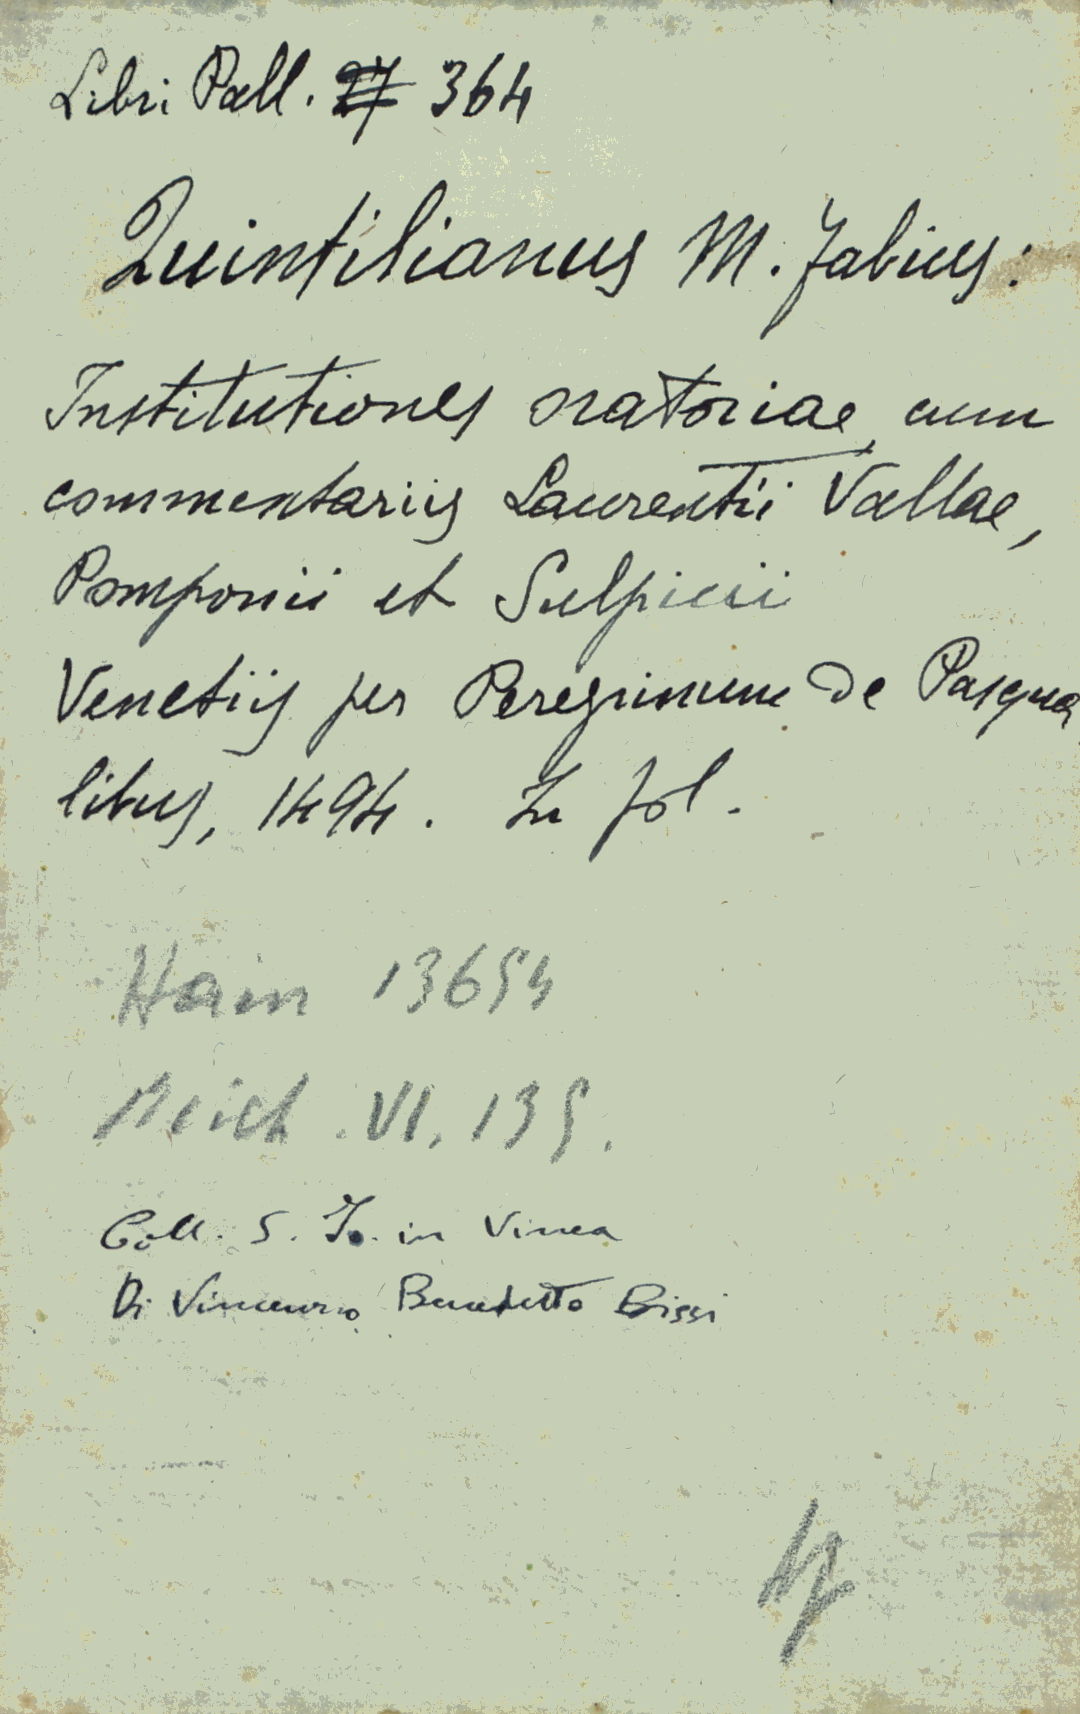 Libri Pall. 27 364
Quintilianus M. Fabius:
Institutiones oratoriae, cum
commentariis Laurentii Vallae,
Pomponii et Sulpicii
Venetiis per Peregrinum de Pasqua
libus, 1494. In fol.
Hain 13654
Reich. VI, 135.
Coll. S. Jo. in Vinea
Di Vincenzo Benedetto Bissi